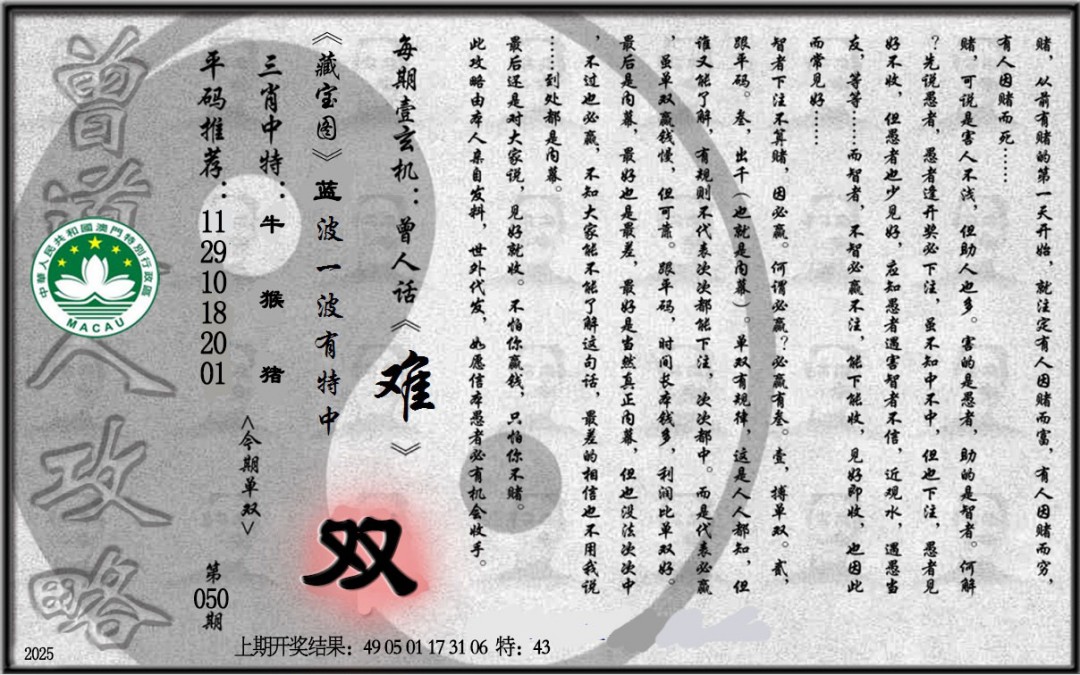 赌，从前有赌的第一天开始，就注定有人因赌而富，有人因赌而穷，
有人因赌而死……
赌，可说是害人不浅，但助人也多。害的是愚者，助的是智者。何解
？先说愚者，愚者逢开奖必下注，虽不知中不中，但也下注，愚者见
好不收，但愚者也少见好，应知愚者遇害智者不信，近观水，遇愚当
友，等等……而智者，不智必赢不注，能下能收，见好即收，也因此
而常见好……
智者下注不算赌，因必赢。何谓必赢？必赢有叁。壹，搏单双。贰，
跟平码。叁，出千（也就是内幕）。单双有规律，这是人人都知，但
谁又能了解，有规则不代表次次都能下注，次次都中。而是代表必赢
，虽单双赢钱慢，但可靠。跟平码，时间长本钱多，利润比单双好。
最后是内幕，最好也是最差，最好是当然真正内幕，但也没法次次中
，不过也必赢，不知大家能不能了解这句话，最差的相信也不用我说
……到处都是内幕。
最后还是对大家说，见好就收。不怕你赢钱，只怕你不赌。
此攻略由本人亲自发料，世外代发，如愿信本愚者必有机会收手。
每期壹玄机：曾人话《难》
《藏宝图》蓝波一波有特中
双
三肖中特：牛 猴 猪
<今期单双>
平码推荐：11 29 10 18 20 01
第050期
曾道人攻略
中華人民共和國澳門特別行政區
MACAU
2025
上期开奖结果：49 05 01 17 31 06 特：43